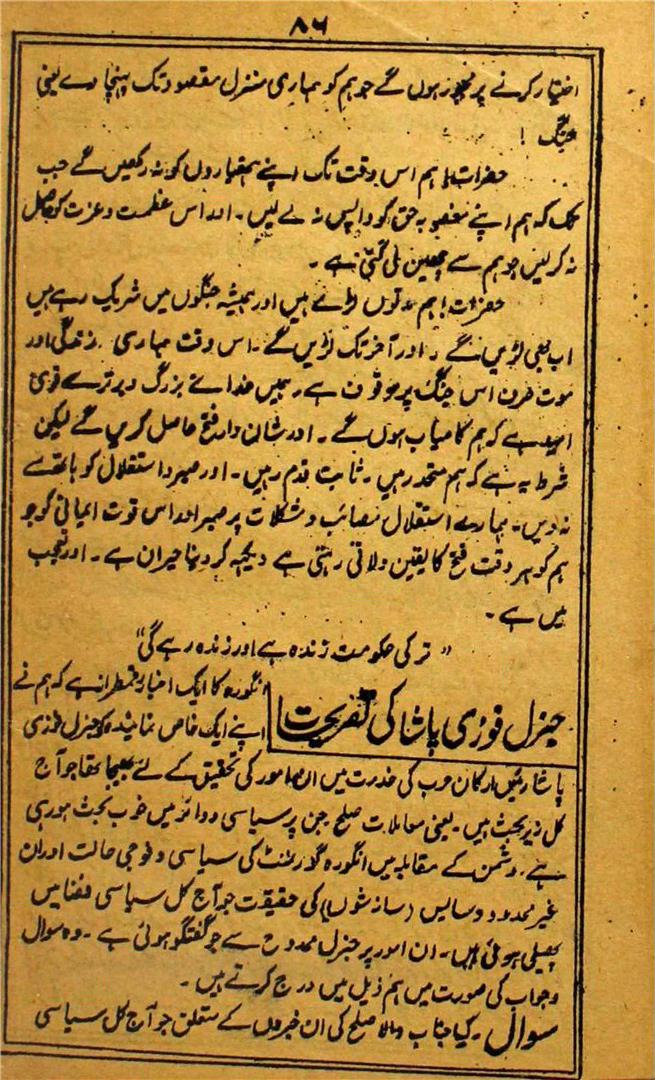 ۸۶
اختیار کرنے پر مجبور ہوں گے جو ہم کو ہماری منزل مقصود تک پہنچا دے یعنی
جنگ !
حضرات! ہم اس وقت تک اپنے ہتھیاروں کو نہ رکھیں گے جب
تک کہ ہم اپنے مغصوبہ حق کو واپس نہ لے لیں۔ اور اس عظمت و عزت کو حاصل
نہ کر لیں جو ہم سے چھین لی گئی ہے۔
حضرات! ہم مدتوں لڑے ہیں اور ہمیشہ جنگوں میں شریک رہے ہیں
اب بھی لڑیں گے۔ اور آخر تک لڑیں گے۔ اس وقت ہماری زندگی اور
موت صرف اس جنگ پر موقوف ہے۔ ہمیں خدائے بزرگ و برتر سے قوی
امید ہے کہ ہم کامیاب ہوں گے۔ اور شان دار فتح حاصل کریں گے لیکن
شرط یہ ہے کہ ہم متحد رہیں۔ ثابت قدم رہیں۔ اور صبر و استقلال کو ہاتھ سے
نہ دیں۔ ہمارے استقلال مصائب و مشکلات پر صبر اور اس قوت ایمانی کو جو
ہم کو ہر وقت فتح کا یقین دلاتی رہتی ہے دیکھ کر دنیا حیران ہے۔ اور تعجب
میں ہے۔
"ترکی حکومت زندہ ہے اور زندہ رہے گی"
جنرل فوزی پاشا کی تصریحات
انگورہ کا ایک اخبار رقمطراز ہے کہ ہم نے
اپنے ایک خاص نمایندہ کو جنرل فوزی
پاشا رئیس ارکان حرب کی خدمت میں ان امور کی تحقیق کے لئے بھیجا تھا جو آج
کل زیر بحث ہیں۔ یعنی معاملات صلح جن پر سیاسی دوائر میں خوب بحث ہو رہی
ہے۔ دشمن کے مقابلہ میں انگورہ گورنمنٹ کی سیاسی و فوجی حالت اور ان
غیر محدود وسایس (سازشوں) کی حقیقت جو آج کل سیاسی فضا میں
پھیلی ہوئی ہیں۔ ان امور پر جنرل ممدوح سے جو گفتگو ہوئی ہے۔ وہ سوال
و جواب کی صورت میں ہم ذیل میں درج کرتے ہیں۔
سوال۔ کیا جناب والا صلح کی ان خبروں کے متعلق جو آج کل سیاسی